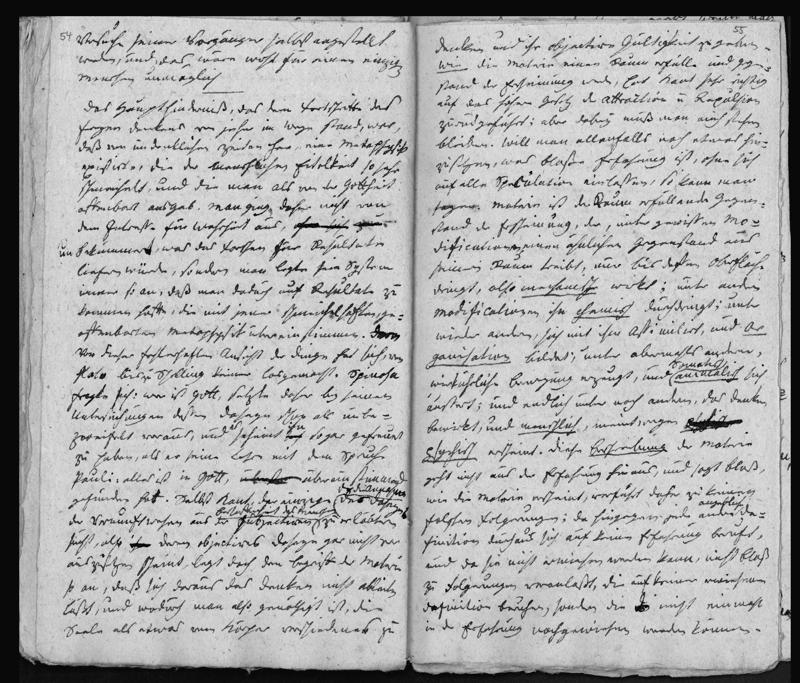 54
Versuche seiner Vorgänger selbst angestellt
werden, und das wäre wohl für einen einzigen
Menschen unmöglich
Das Haupthinderniß, das dem Fortschritte des
freyen Denkens von jeher im Wege stand, war,
daß von undenklichen Zeiten her, eine Metaphysik
existirte, die der menschlichen Eitelkeit so sehr
schmeichelt, und die man als von der Gottheit
offenbart ausgab. Man ging daher nicht von
dem Interesse für Wahrheit aus,
unbekümmert, was das Forschen für Resultate
liefern würde, sondern man legte sein System
immer so an, daß man dadurch auf Resultate zu
kommen hoffte, die mit jener schmeichelhaften, ge-
offenbarten Metaphysik übereinstimmen.
Von dieser fehlerhaften Ansicht der Dinge hat sich, von
Plato bis Schelling keiner losgemacht. Spinosa
fragte sich: was ist Gott, setzte daher bey seinen
Untersuchungen dessen Daseyn schon als unbe-
zweifelt voraus, und es scheint ihn sogar gefreuet
zu haben, als er seine Lehre mit dem Spruch
Pauli: alles ist in Gott, übereinstimmend
gefunden hat. Selbst Kant, der
der Vernunftideen aus der Subjectiven zu erklären
sucht, also deren objectives Daseyn gar nicht vor-
auszusetzen scheint, legt doch den Begriff der Materie
so an, daß sich daraus das Denken nicht ableiten
läßt, und wodurch man also genöthigt ist, die
Seele als etwas vom Körper verschiedenes zu
55
denken und ihr objective Gültigkeit zu geben.
Wie die Materie einen Raum erfülle und Gegen-
stand der Erscheinung werde, hat Kant sehr richtig
auf das höhere Gesetz der Attraction u Repulsion
zurückgeführt; aber dabey muß man auch stehen
bleiben. Will man allenfalls noch etwas hin-
zusetzen, was bloße Erfahrung ist, ohne sich
auf alle Speculation einlassen, so kann man
sagen: Materie ist der Raum erfüllende Gegen-
stand der Erscheinung, der, unter gewissen Mo-
dificationen, einen ähnlichen Gegenstand aus
seinem Raum treibt, nur bis dessen Oberfläche
dringt, also mechanisch wirkt; unter andern
Modificationen ihn chemisch durchdringt; unter
wieder andern, sich mit ihm assimilirt, und Or-
ganisation bildet; unter abermahls andern,
willkührliche Bewegung erzeugt, und animalisch sich
äussert; und endlich unter noch andern, das Denken
bewirkt, und menschlich,
psychisch erscheint. Diese Beschreibung der Materie
geht nicht aus der Erfahrung hinaus, und sagt bloß,
wie die Materie erscheint, verführt daher zu keinen
falschen Folgerungen; da hingegen jede andere De-
finition durchaus sich auf keine Erfahrung beruft,
und da sie nicht erwiesen werden kann, nicht bloß
zu Folgerungen veranlaßt, die auf keiner erwiesenen
Definition beruhen, sondern die nicht einmahl
in der Erfahrung nachgewiesen werden können.